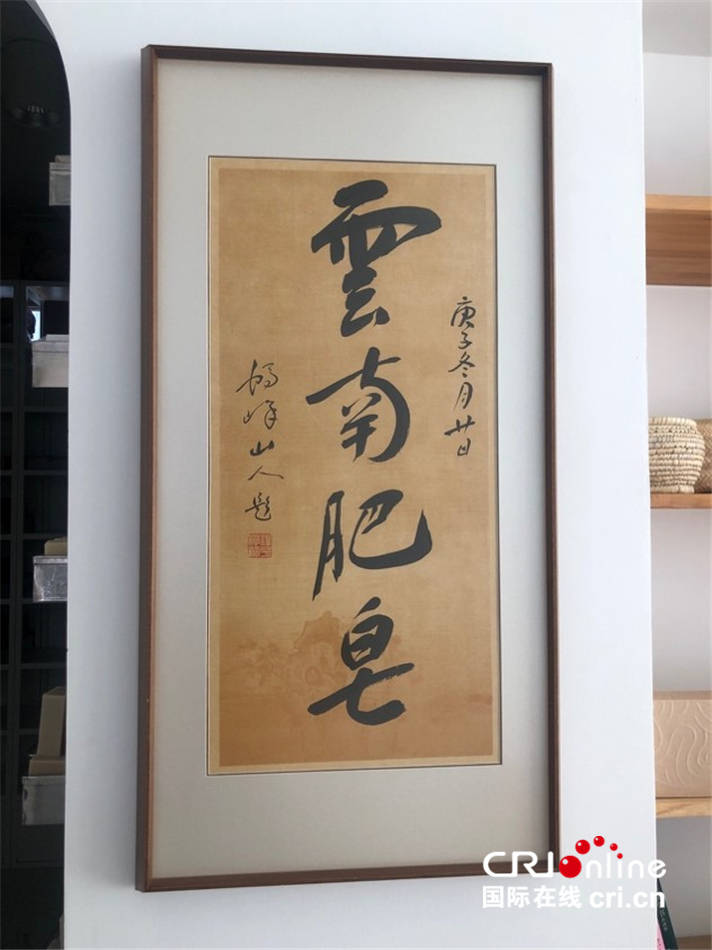 雲南肥皂
庚子冬月廿日
山人題
CRIonline
国际在线 cri.cn